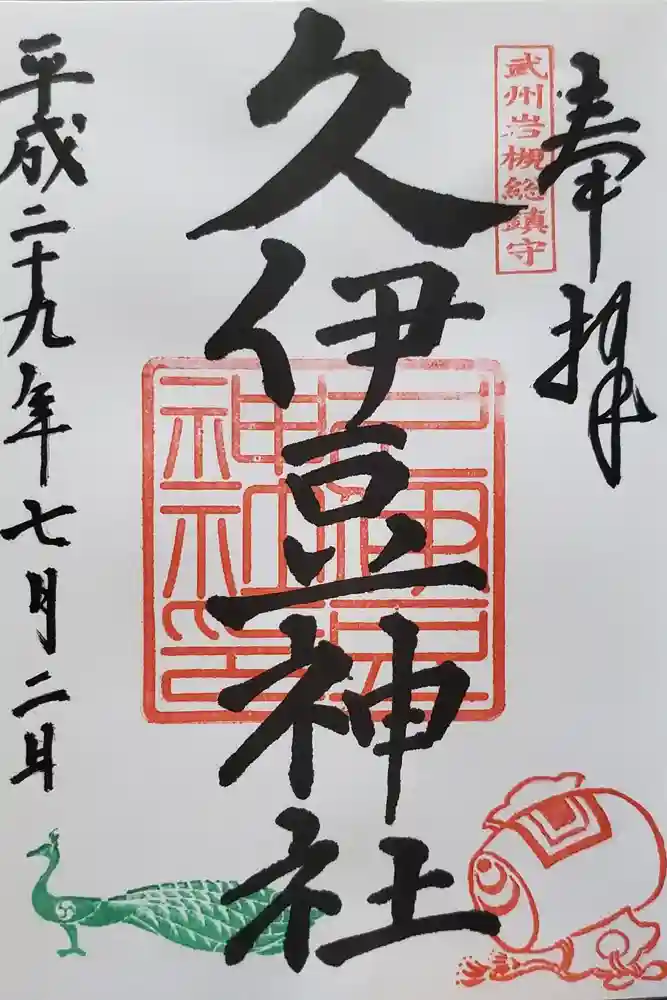 奉拝
武州岩槻総鎮守
久伊豆神社
平成二十九年七月二日